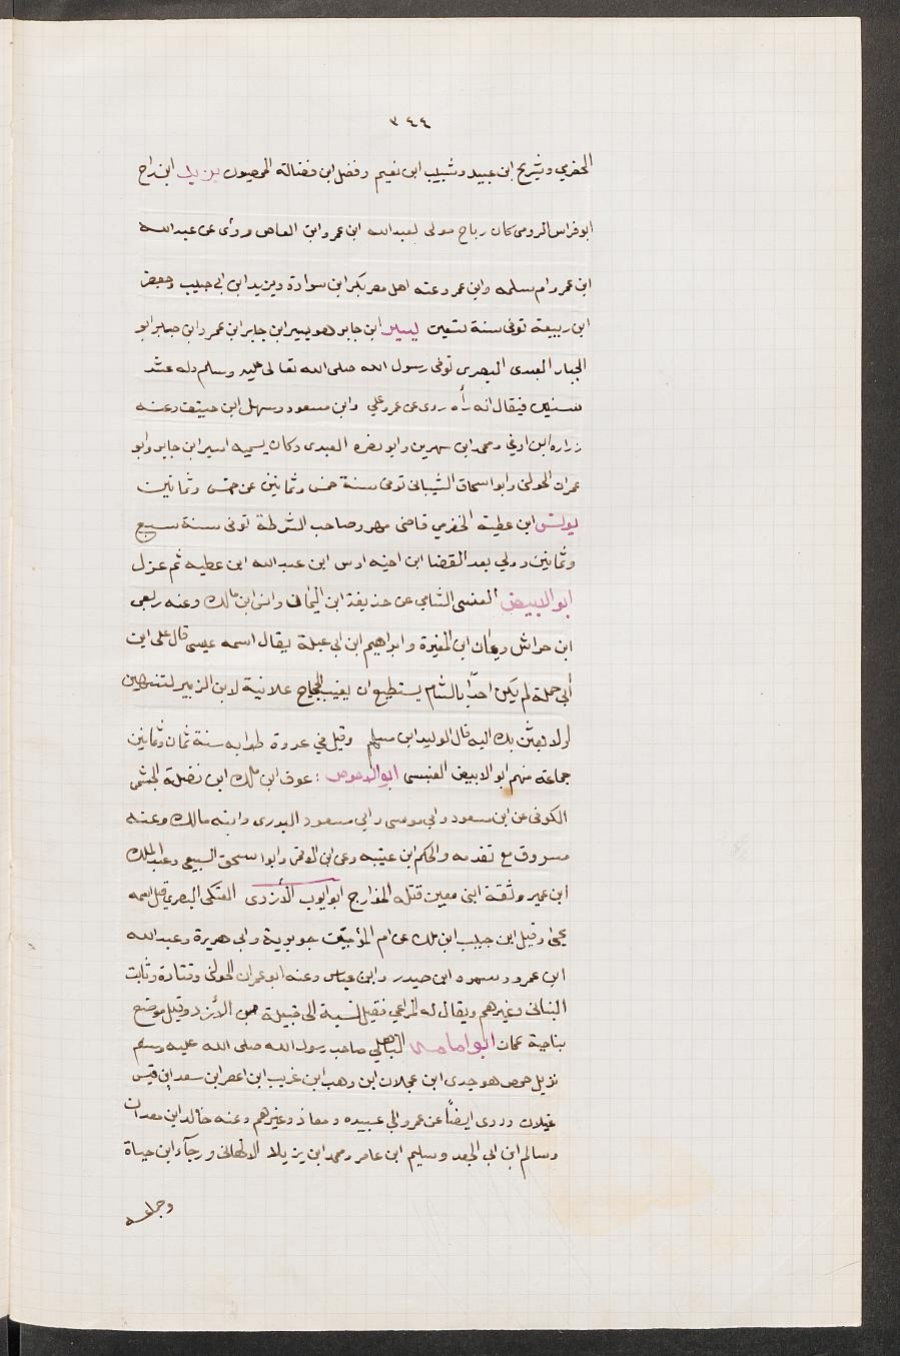 ٣٤٤
الحضرمي وشريح ابن عبيد وشبيب ابن نعيم وفضل ابن فضالة الحمصيون يزيد ابن رباح
ابو فراس الرومي كان رباح مولى لعبد الله ابن عمرو ابن العاص وروى عن عبد الله
ابن عمر وام سلمه وابن عمر وعنه اهل مصر بكر ابن سوادة ويزيد ابن ابي حبيب وجعفر
ابن ربيعة توفى سنة تسعين يسير ابن جابر وهو يسير ابن جابر ابن عمر وابن جابر ابو
الجبار العبدى البصرى توفى رسول الله صلى الله تعالى عليه وسلم وله عشر
سنين فيقال انه رأه روى عن عمر وعلي وابن مسعود وسهل ابن حنيف وعنه
زراره ابن اوفي ومحمد ابن سيرين وابو نضره العبدى وكان يسميه اسير ابن جابر وابو
عمران الجوني وابو اسحاق الشيباني توفى سنة خمس وثمانين عن خمس وثمانين
يونس ابن عطية الحضرمي قاضي مصر وصاحب الشرطة توفى سنة سبع
وثمانين وولي بعد القضا ابن اخيه اوس ابن عبد الله ابن عطيه ثم عزل
ابو الابيض العنسى الشامي عن حذيفة ابن اليمان وانس ابن مالك وعنه ربعى
ابن حراش ويمان ابن المغيرة وابراهيم ابن ابي عبلة يقال اسمه عيسى قال على ابن
أبي حملة لم يكن احدًا بالشام يستطيع ان يعيب الحجاج علانية لابن الزبير لتنتهين
او لابعثن بك اليه قال الوليد ابن مسلم وقيل في غزوة طوانه سنة ثمان وثمانين
جماعة منهم ابو الابيض العنسى ابو الاحوص : عوف ابن ملك ابن نضلة الجشمى
الكوفى عن ابن مسعود وابي موسى وابي مسعود البدرى وابيه مالك وعنه
مسروق مع تقدمه والحكم ابن عتيبه وعلى ابن الاقمر وابو اسحق السبيعى وعبد الملك
ابن عمير وثقة ابن معين قتله الخوارج ابو ايوب الأزدى العتكى البصري قيل اسمه
يحيى وقيل ابن حبيب ابن ملك عن ام المؤمنين جويرية وابى هريرة وعبد الله
ابن عمرو وسمره ابن جندب وابن عباس وعنه ابو عمران الجونى وقتادة وثابت
البنانى وغيرهم ويقال له المراغي فقيل نسبة الى قبيلة من الأزد وقيل موضع
بناحية عمان ابو امامه الباهلي صاحب رسول الله صلى الله عليه وسلم
نزيل حمص هو جدى ابن عجلان ابن وهب ابن غريب ابن اعصر ابن سعد ابن قيس
غيلان وروى ايضًا عن عمر وابي عبيده ومعاذ وغيرهم وعنه خالد ابن معدان
وسالم ابن ابي الجعد وسليم ابن عامر ومحمد ابن يزياد الالهانى ورجآء ابن حياة
وجماعه